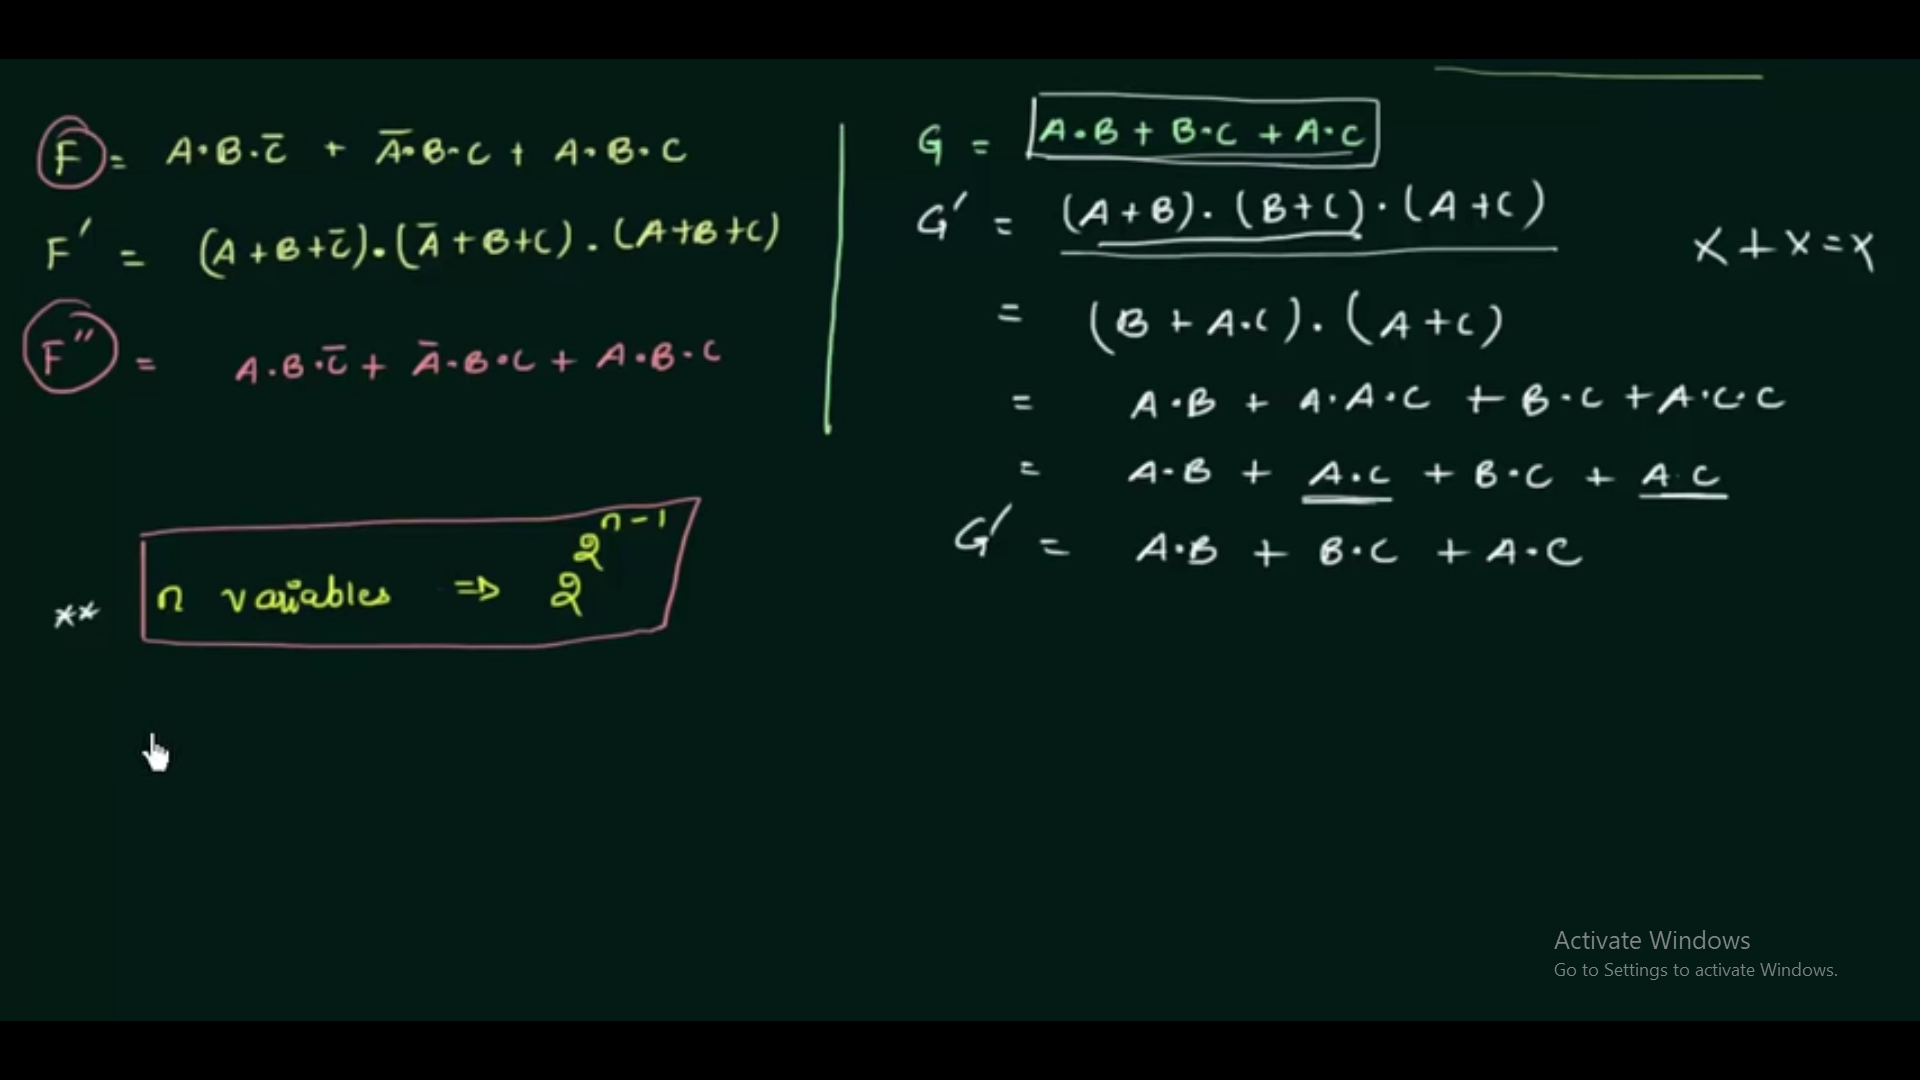 F = A·B·C̅ + A̅·B·C + A·B·C
F′ = (A+B+C̅)·(A̅+B+C)·(A+B+C)
F″ = A·B·C̅ + A̅·B·C + A·B·C
** n variables ⇒ 2^2^n-1
G = A·B + B·C + A·C
G′ = (A+B)·(B+C)·(A+C)
X + X = X
= (B + A·C)·(A+C)
= A·B + A·A·C + B·C + A·C·C
= A·B + A·C + B·C + A·C
G′ = A·B + B·C + A·C
Activate Windows
Go to Settings to activate Windows.